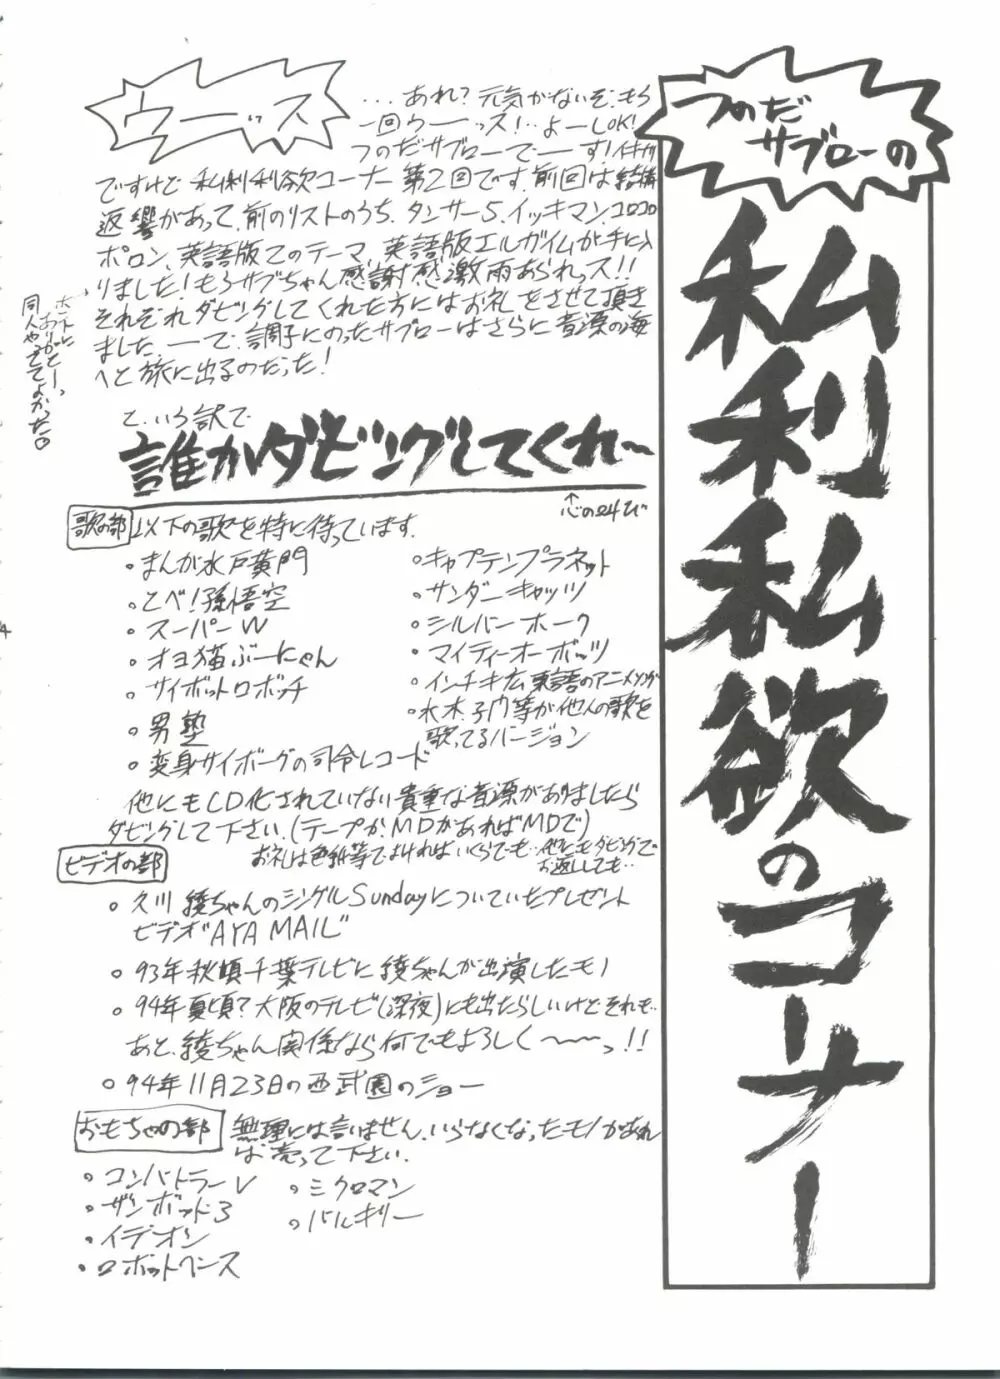 つのだ
サブローの
私利私欲のコーナー
ウーッス
...あれ?元気がないぞ.もう
一回ウーーッス!..よーしOK!
つのだサブローでーーす!イキナリ
ですけど私利私欲コーナー第2回です.前回は結構
返響があって、前のリストのうち、タンサー5、イッキマン、コロコロ
ポロン、英語版Zのテーマ、英語版エルガイムが手に入
りました!もうサブちゃん感謝感激雨あられっス!!
それぞれダビングしてくれた方にはお礼をさせて頂き
ました、ーーで、調子にのったサブローはさらに音源の海
へと旅に出るのだった!
ホントに
ありがとーっ
同人やっててよかった。
と、いう訳で
誰かダビングしてくれ〜
↑心の叫び
歌の部 以下の歌を特に待っています.
・まんが水戸黄門
・とべ!孫悟空
・スーパーW
・オヨ猫ぶーにゃん
・サイボットロボッチ
・男塾
・変身サイボーグの司令レコード
・キャプテンプラネット
・サンダーキャッツ
・シルバーホーク
・マイティーオーボッツ
・インチキ広東語のアニメソング
・水木、子門等が他人の歌を
歌ってるバージョン
他にもCD化されていない貴重な音源がありましたら
ダビングして下さい.(テープか、MDがあればMDで)
お礼は色紙等でよければいくらでも...他にもダビングで
お返ししても..
ビデオの部
・久川綾ちゃんのシングルSundayについていたプレゼント
ビデオ"AYA MAIL"
・93年秋頃千葉テレビに綾ちゃんが出演したモノ
・94年夏頃?大阪のテレビ(深夜)にも出たらしいけどそれも..
あと、綾ちゃん関係なら何でもよろしく〜〜っ!!
・94年11月23日の西武園のショー
おもちゃの部 無理には言いません.いらなくなったモノがあれ
ば売って下さい.
・コンバトラーV
・ザンボット3
・イデオン
・ロボットヘンス
・ミクロマン
・バルキリー
4